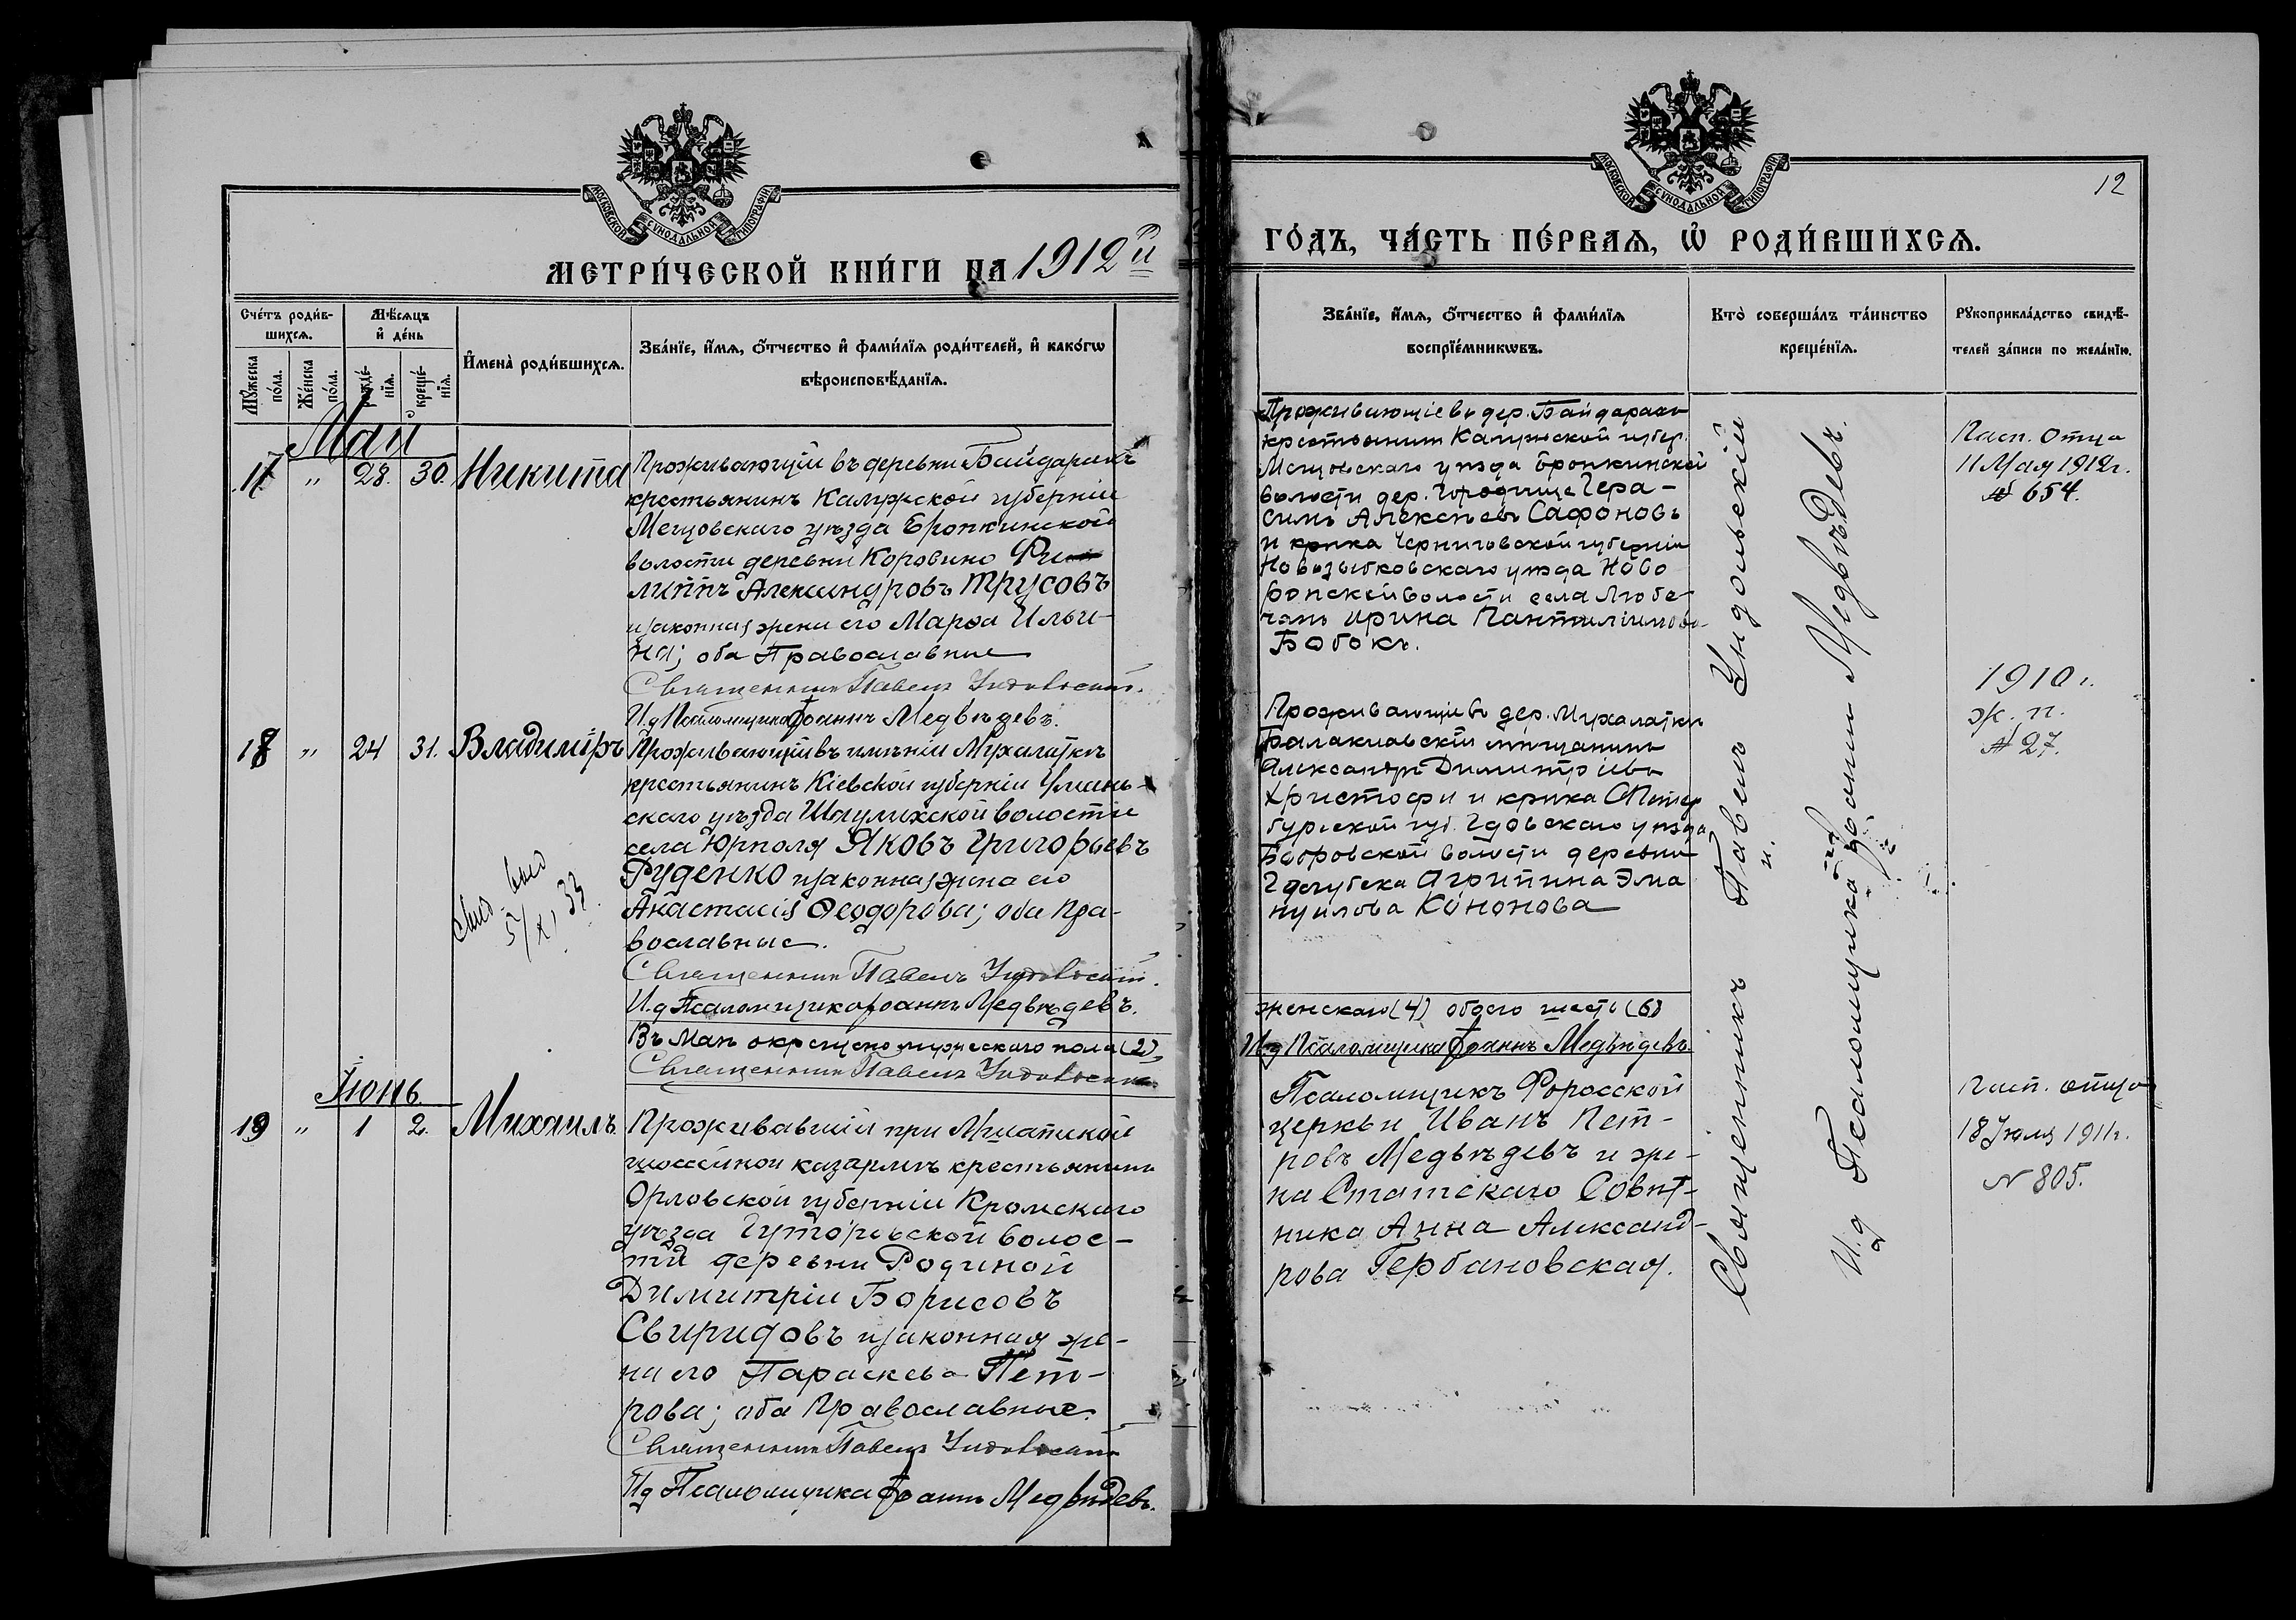 МОСКОВСКОЙ СѴНОДАЛЬНОЙ ТИПОГРАФІИ
МЕТРИ́ЧЕСКОЙ КНИ́ГИ НА 1912й
Сче́тъ роди́в-
шихсѧ.
Мꙋ́жеска
по́ла.
Же́нска
по́ла.
Мѣ́сѧцъ
и҆ де́нь
рожде́-
нїѧ.
креще́-
нїѧ.
И҆мена̀ роди́вшихсѧ.
Зва́нїе, и҆́мѧ, ѻ҆́тчество и҆ фами́лїѧ роди́телей, и҆ како́гѡ
вѣроисповѣ́данїѧ.
Май
17 " 28. 30. Никита
Проживающій въ деревни Байдарахъ
крестьянинъ Калужской губерніи
Мещовскаго уѣзда Еропкинской
волости деревни Коровино Фи
липпъ Александровъ Трусовъ
и законная жена его Марѳа Ильи-
на; оба Православные
Священникъ Павелъ Ундольскій.
И.д Псаломщика Іоаннъ Медвѣдевъ.
18 " 24 31. Владиміръ
Проживающій въ имѣніи Мухалаткѣ
крестьянинъ Кіевской губерніи Умань-
скаго уѣзда Шаулихской волости
села Юрполя Яковъ Григорьевъ
Руденко и законная жена его
Анастасія Ѳеодорова; оба Пра-
вославные.
Священникъ Павелъ Ундольскій.
И.д Псаломщика Іоаннъ Медвѣдевъ.
5/XI 33.
Въ Маѣ окрещено мужескаго пола (2),
Священникъ Павелъ Ундольскій
Іюнь.
19 " 1 2. Михаилъ.
Проживавшій при Мшатской
шоссейной казармѣ крестьянинъ
Орловской губерніи Кромскаго
уѣзда Гуторовской волос-
ти деревни Родиной
Димитрій Борисовъ
Свиридовъ и законная же-
на его Параскева Пет-
рова; оба Православные.
Священникъ Павелъ Ундольскій
И.д Псаломщика Іоаннъ Медвѣдевъ.
12
МОСКОВСКОЙ СѴНОДАЛЬНОЙ ТИПОГРАФІИ
ГО́ДЪ, ЧА́СТЬ ПЕ́РВАѦ, Ѡ҆ РОДИ́ВШИХСѦ.
Зва́нїе, и҆́мѧ, ѻ҆́тчество и҆ фами́лїѧ
воспрїе́мникѡвъ.
Кто̀ соверша́лъ та́инство
креще́нїѧ.
Рꙋкоприкла́дство свидѣ́-
телей за́писи по жела́нїю.
Проживающіе въ дер. Байдарахъ
крестьянинъ Калужской губер.
Мещовскаго уѣзда Еропкинской
волости дер. Городище Гера-
симъ Алексѣевъ Сафоновъ
и крнка Черниговской губерніи
Новозыбковскаго уѣзда Ново
ропской волости села Любе
чанъ Ирина Пантелиимова
Бобокъ.
Пасп. Отца
11 Мая 1912г.
№ 654.
Проживающіе въ дер. Мухалаткѣ
Балаклавскій мѣщанинъ
Александръ Димитріевъ
Христофи и крнка СПетер
бургской губ. Гдовскаго уѣзда
Бобровской волости деревни
Агрипина Эма
нуилова Кононова
1910г.
ж. п.
№ 27.
женскаго (4) обоего шесть (6)
И.д Псаломщика Іоаннъ Медвѣдевъ.
Псаломщикъ Форосской
церкви Иванъ Пет-
ровъ Медвѣдевъ и же-
на Статскаго Совѣт-
ника Анна Александ-
рова Гербановская.
Пасп. отца
18 Іюля 1911г.
№ 805.
Священникъ Павелъ Ундольскій
И.д Псаломщика Іоаннъ Медвѣдевъ.